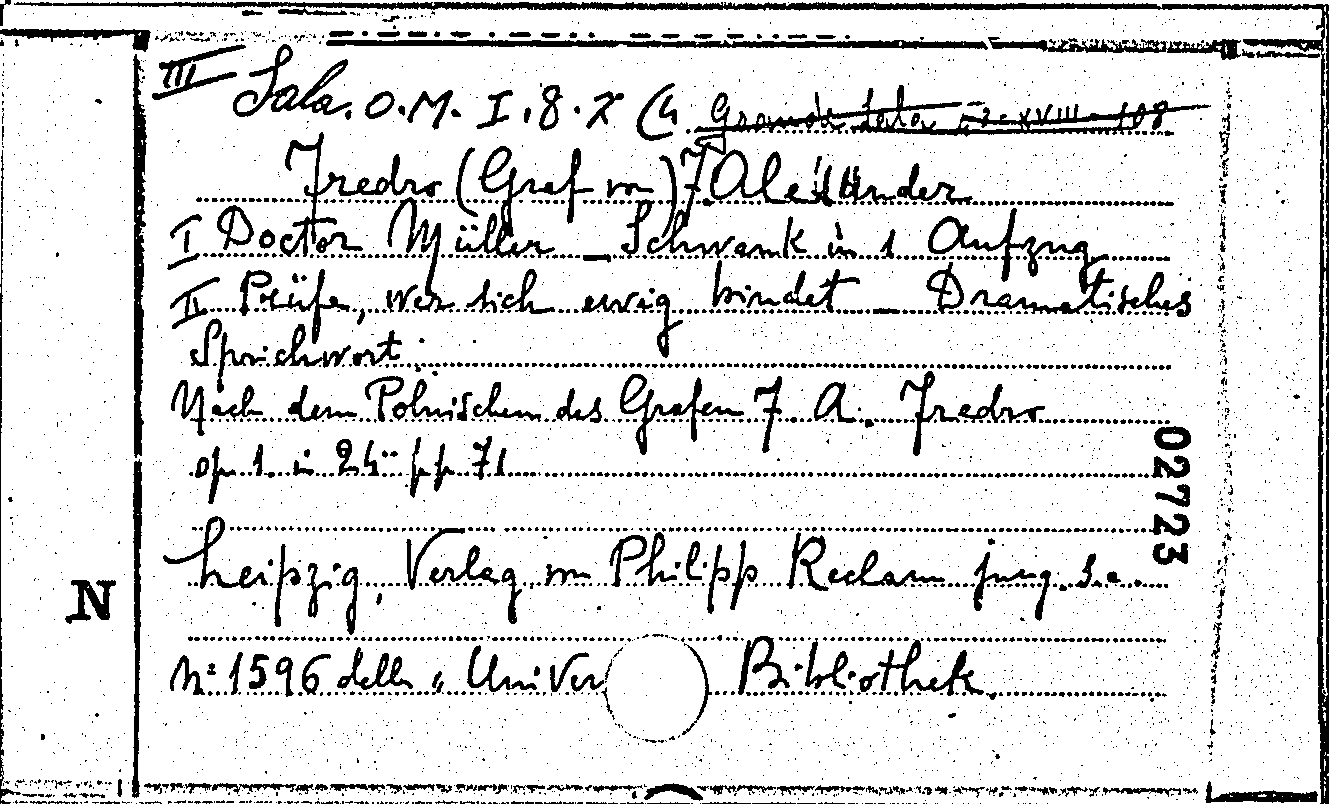 III Sala. O.M. I.8.X (4 Grande Sala 2-XVIII-108
Fredro (Graf von) J. Alexander
I Doctor Müller _ Schwank in 1 Aufzug
II Prüfe, wer sich ewig bindet _ Dramatisches
Sprichwort.
Nach dem Polnischen des Grafen J. A. Fredro
op 1. in 24° pp 71
Leipzig, Verlag von Philipp Reclam jung. s.a.
N° 1596 della "Univer Bibliothek.
02723
N